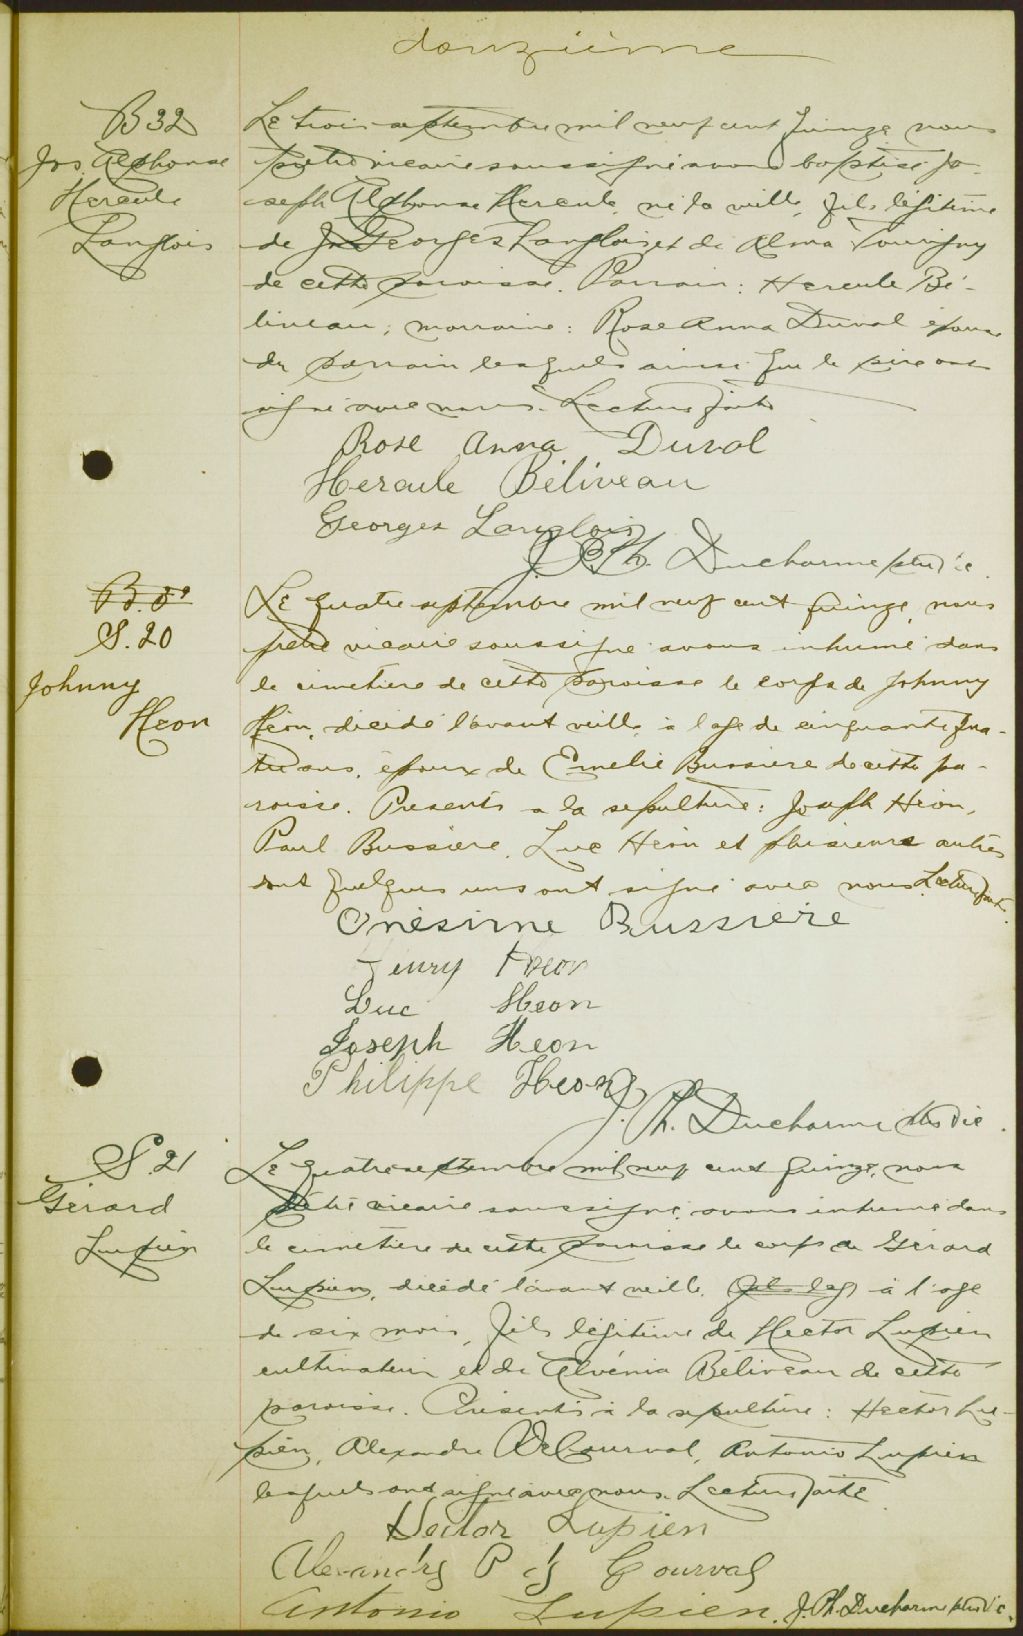 douzième
B 32
Jos. Alphonse
Hercule
Langlois
Le trois septembre mil neuf cent quinze, nous
prêtre vicaire soussigné avons baptisé Jo-
seph Alphonse Hercule, né la veille, fils légitime
de Georges Langlois et de Alma Tourigny
de cette paroisse. Parrain: Hercule Bé-
liveau; marraine: Rose Anna Duval épouse
du parrain lesquels ainsi que le père ont
signé avec nous. Lecture faite
Rose Anna Duval
Hercule Béliveau
Georges Langlois
J. Ph. Ducharme ptre vic.
S. 20
Johnny
Heon
Le quatre septembre mil neuf cent quinze, nous
prêtre vicaire soussigné avons inhumé dans
le cimetière de cette paroisse le corps de Johnny
Héon, décédé l'avant veille, à l'age de cinquante qua-
tre ans, époux de Emelie Bussiere de cette pa-
roisse. Présents à la sépulture: Joseph Héon,
Paul Bussière, Luc Héon et plusieurs autres
dont quelques uns ont signé avec nous. Lecture faite.
Onésime Bussière
Henry Heon
Luc Heon
Joseph Heon
Philippe Heon
J. Ph. Ducharme ptre vic.
S. 21
Gérard
Lupien
Le quatre septembre mil neuf cent quinze, nous
prêtre vicaire soussigné, avons inhumé dans
le cimetière de cette paroisse le corps de Gérard
Lupien, décédé l'avant veille, à l'age
de six mois, fils légitime de Hector Lupien
cultivateur et de Alvénia Béliveau de cette
paroisse. Présents à la sépulture: Hector Lu-
pien, Alexandre DeCourval, Antonio Lupien
lesquels ont signé avec nous. Lecture faite
Hector Lupien
Alexandre P de Courval
Antonio Lupien. J. Ph. Ducharme ptre vic.